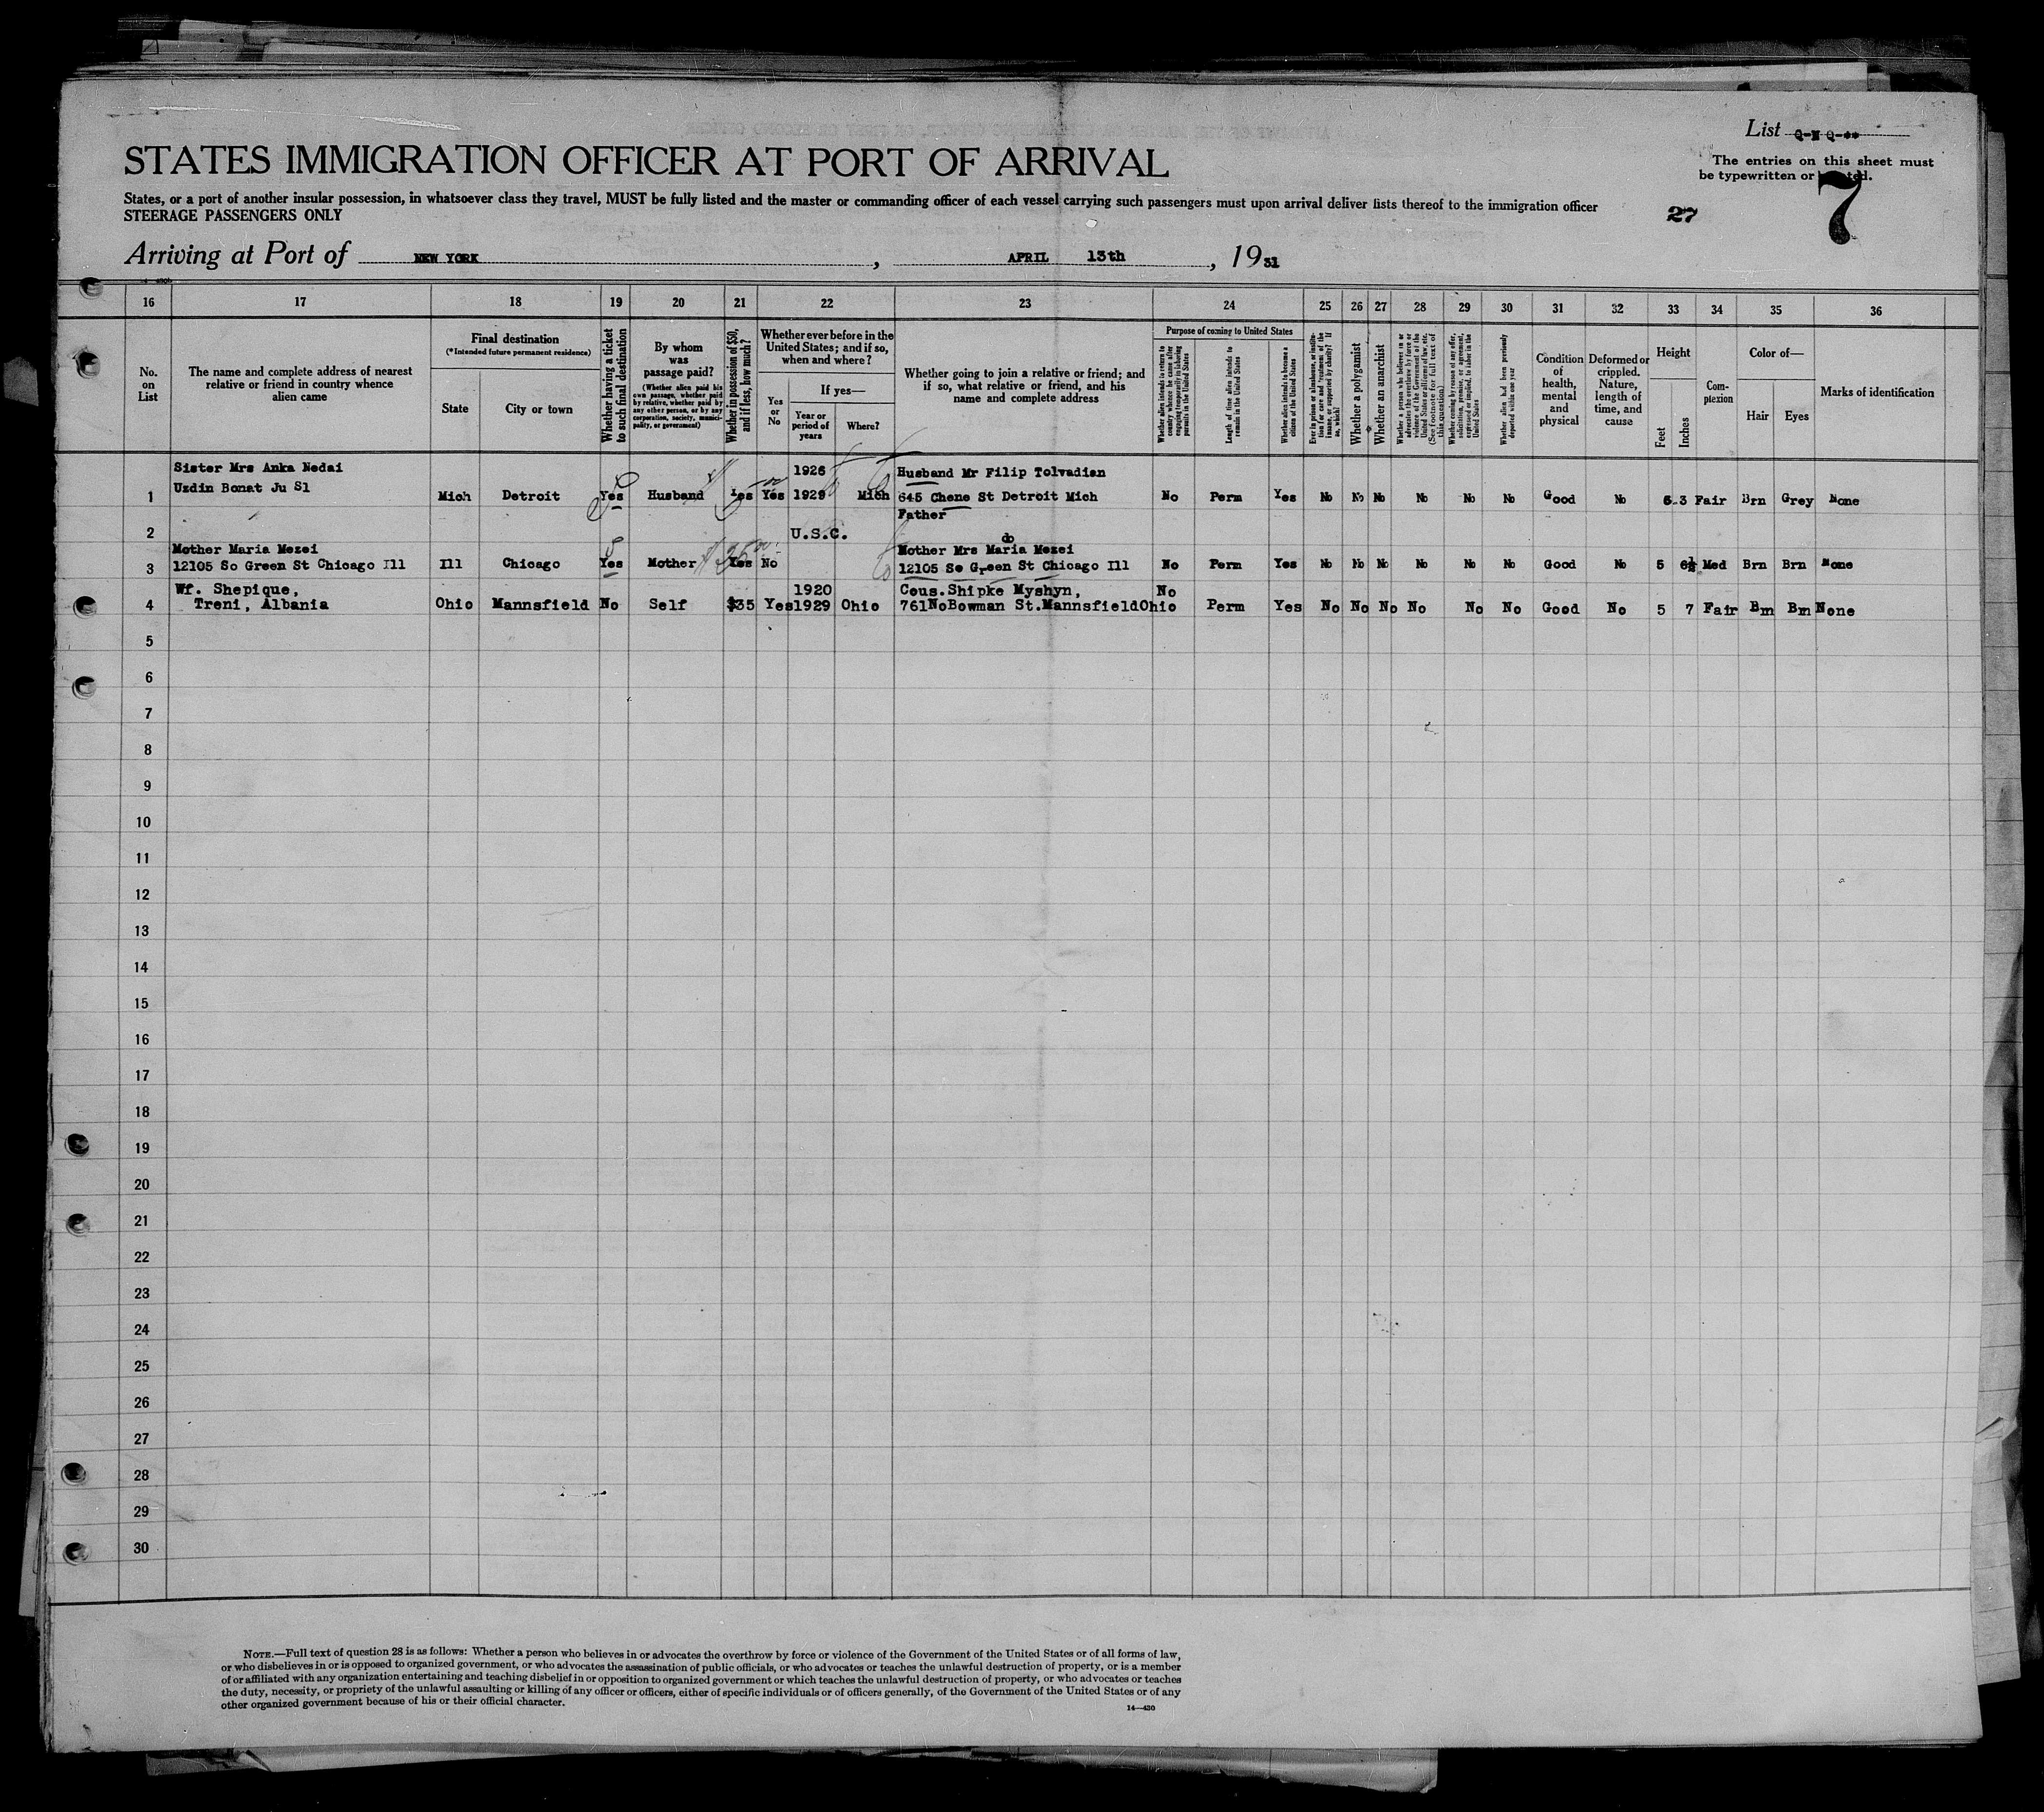 List Q-N Q-**
STATES IMMIGRATION OFFICER AT PORT OF ARRIVAL
The entries on this sheet must
be typewritten or
7
States, or a port of another insular possession, in whatsoever class they travel, MUST be fully listed and the master or commanding officer of each vessel carrying such passengers must upon arrival deliver lists thereof to the immigration officer
STEERAGE PASSENGERS ONLY
27
Arriving at Port of NEW YORK, APRIL 13th, 1931
16 17 18 19 20 21 22 23 24 25 26 27 28 29 30 31 32 33 34 35 36
No.
on
List
The name and complete address of nearest
relative or friend in country whence
alien came
Final destination
(*Intended future permanent residence)
State
City or town
Whether having a ticket
to such final destination
By whom
was
passage paid?
(Whether alien paid his
own passage, whether paid
by relative, whether paid by
any other person, or by any
corporation, society, munici-
pality, or government)
Whether in possession of $50,
and if less, how much?
Whether ever before in the
United States; and if so,
when and where?
Yes
or
No
If yes—
Year or
period of
years
Where?
Whether going to join a relative or friend; and
if so, what relative or friend, and his
name and complete address
Purpose of coming to United States
Whether alien intends to return to
country whence he came after
engaging temporarily in laboring
pursuits in the United States
Length of time alien intends to
remain in the United States
Whether alien intends to become a
citizen of the United States
Ever in prison or almshouse, or institu-
tion for care and treatment of the
insane, or supported by charity? If
so, which?
Whether a polygamist
Whether an anarchist
Whether a person who believes in or
advocates the overthrow by force or
violence of the Government of the
United States or all forms of law, etc.
(See footnote for full text of
this question)
Whether coming by reason of any offer,
solicitation, promise, or agreement,
expressed or implied, to labor in the
United States
Whether alien had been previously
deported within one year
Condition
of
health,
mental
and
physical
Deformed or
crippled.
Nature,
length of
time, and
cause
Height
Feet
Inches
Com-
plexion
Color of—
Hair
Eyes
Marks of identification
Sister Mrs Anka Nedai 1926 Husband Mr Filip Tolvadian
Uzdin Banat Ju Sl
1 Mich Detroit Yes Husband Yes Yes 1929 Mich 645 Chene St Detroit Mich No Perm Yes No No No No No No Good No 5 3 Fair Brn Grey None
Father
2 U.S.C. do
Mother Maria Mezei Mother Mrs Maria Mezei
3 12105 So Green St Chicago Ill Ill Chicago Yes Mother Yes No 12105 So Green St Chicago Ill No Perm Yes No No No No No No Good No 5 6½ Med Brn Brn None
Wf. Shepique, 1920 Cous.Shipke Myshyn, No
4 Treni, Albania Ohio Mannsfield No Self $35 Yes 1929 Ohio 761NoBowman St.MannsfieldOhio Perm Yes No No No No No No Good No 5 7 Fair Bm Bm None
5
6
7
8
9
10
11
12
13
14
15
16
17
18
19
20
21
22
23
24
25
26
27
28
29
30
NOTE.—Full text of question 28 is as follows: Whether a person who believes in or advocates the overthrow by force or violence of the Government of the United States or of all forms of law,
or who disbelieves in or is opposed to organized government, or who advocates the assassination of public officials, or who advocates or teaches the unlawful destruction of property, or is a member
of or affiliated with any organization entertaining and teaching disbelief in or opposition to organized government or which teaches the unlawful destruction of property, or who advocates or teaches
the duty, necessity, or propriety of the unlawful assaulting or killing of any officer or officers, either of specific individuals or of officers generally, of the Government of the United States or of any
other organized government because of his or their official character.
14—430